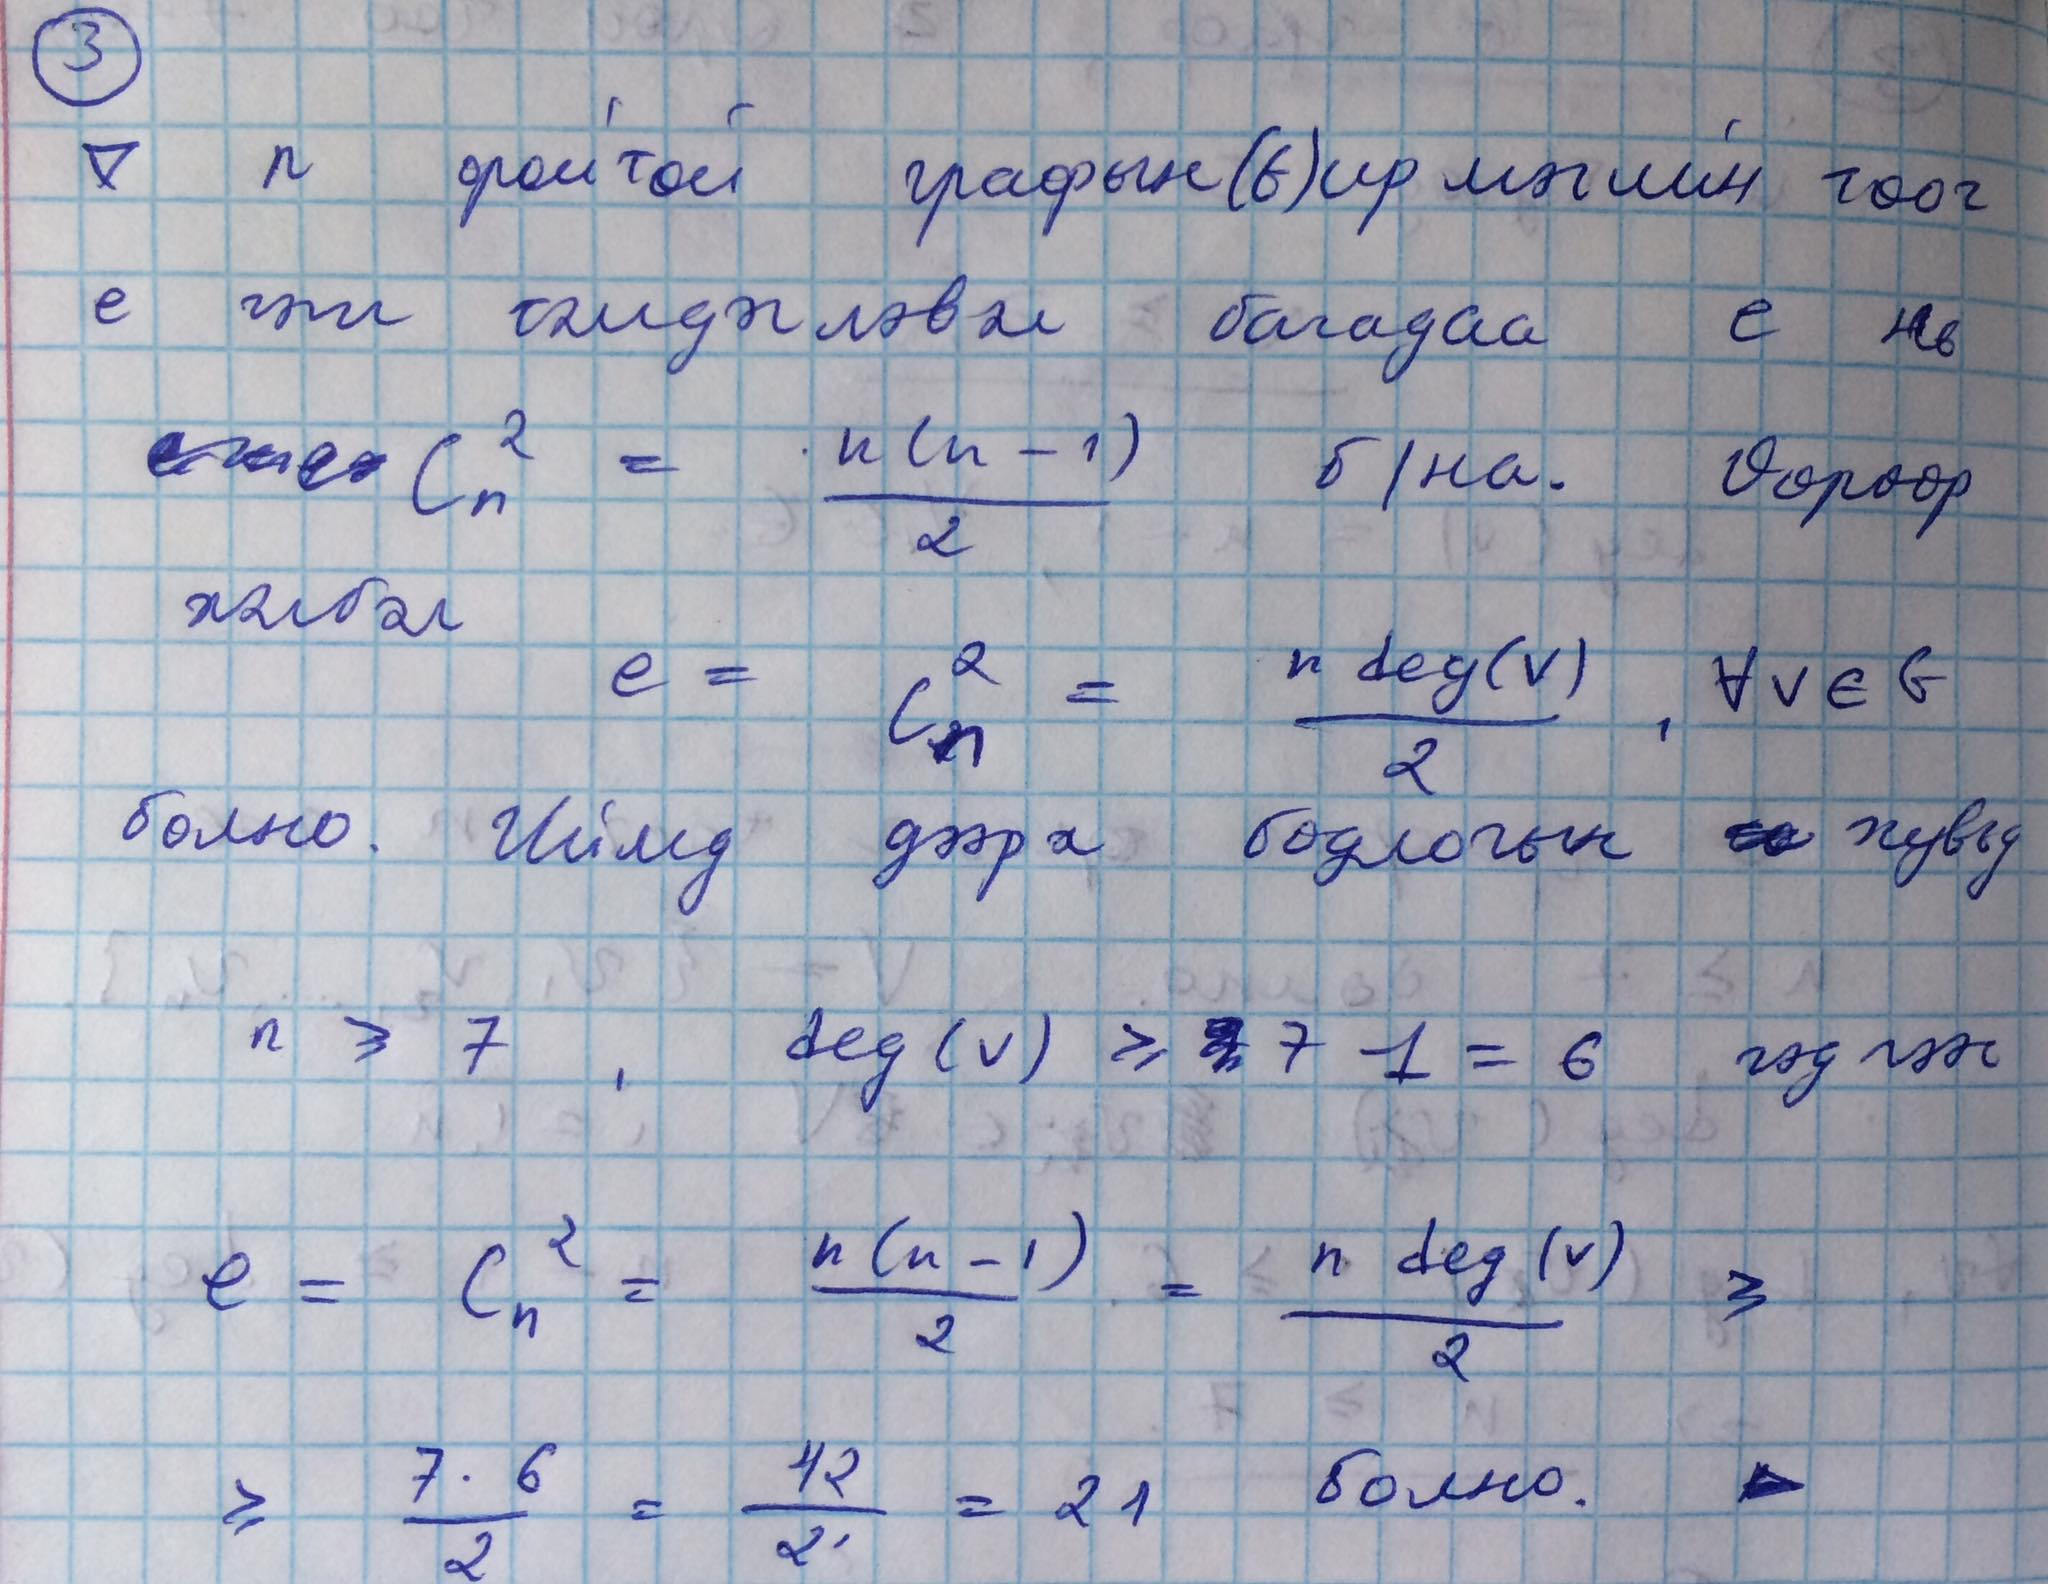 3
∇ n оройтой графын(G)ирмэгийн тоог
e гэж тэмдэглэвэл багадаа e нь
C_n^2 = n(n-1)/2 б/на. Өөрөөр
хэлбэл
e = C_n^2 = n deg(v)/2, ∀v∈G
болно. Иймд дээрх бодлогын хувьд
n ≥ 7, deg(v) ≥ 7-1 = 6 гэдгээс
e = C_n^2 = n(n-1)/2 = n deg(v)/2 ≥
≥ 7·6/2 = 42/2 = 21 болно. ►